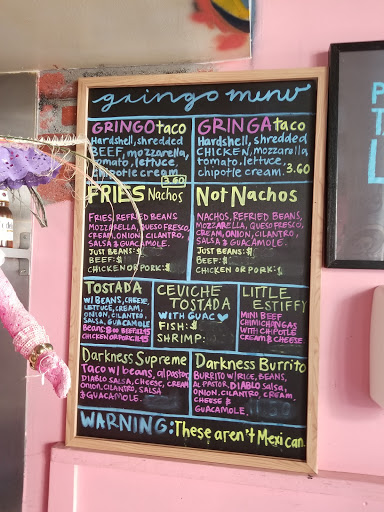 gringo menu
GRINGO taco
Hardshell, shredded
BEEF, mozzarella,
tomato, lettuce,
chipotle cream
3.60
GRINGA taco
Hardshell, shredded
CHICKEN, mozzarella
tomato, lettuce,
chipotle cream. 3.60
FRIES Nachos
FRIES, REFRIED BEANS
MOZZARELLA, QUESO FRESCO,
CREAM, ONION, CILANTRO,
SALSA & GUACAMOLE.
JUST BEANS: $
BEEF: $
CHICKEN OR PORK: $
Not Nachos
NACHOS, REFRIED BEANS,
MOZZARELLA, QUESO FRESCO,
CREAM, ONION, CILANTRO,
SALSA & GUACAMOLE.
JUST BEANS: $
BEEF: $
CHICKEN OR PORK: $
TOSTADA
W/ BEANS, CHEESE,
LETTUCE, CREAM,
ONION, CILANTRO,
SALSA, GUACAMOLE
CEVICHE
TOSTADA
WITH GUAC
FISH: $
SHRIMP:
LITTLE
ESTIFFY
MINI BEEF
CHIMICHANGAS
WITH CHIPOTLE
CREAM & CHEESE
Darkness Supreme
Taco w/ beans, al pastor,
DIABLO SALSA, CHEESE, CREAM
ONION, CILANTRO, SALSA
& GUACAMOLE.
Darkness Burrito
BURRITO W/ RICE, BEANS,
AL PASTOR, DIABLO salsa,
ONION, CILANTRO, CREAM
CHEESE &
GUACAMOLE,
WARNING: These aren't Mexican